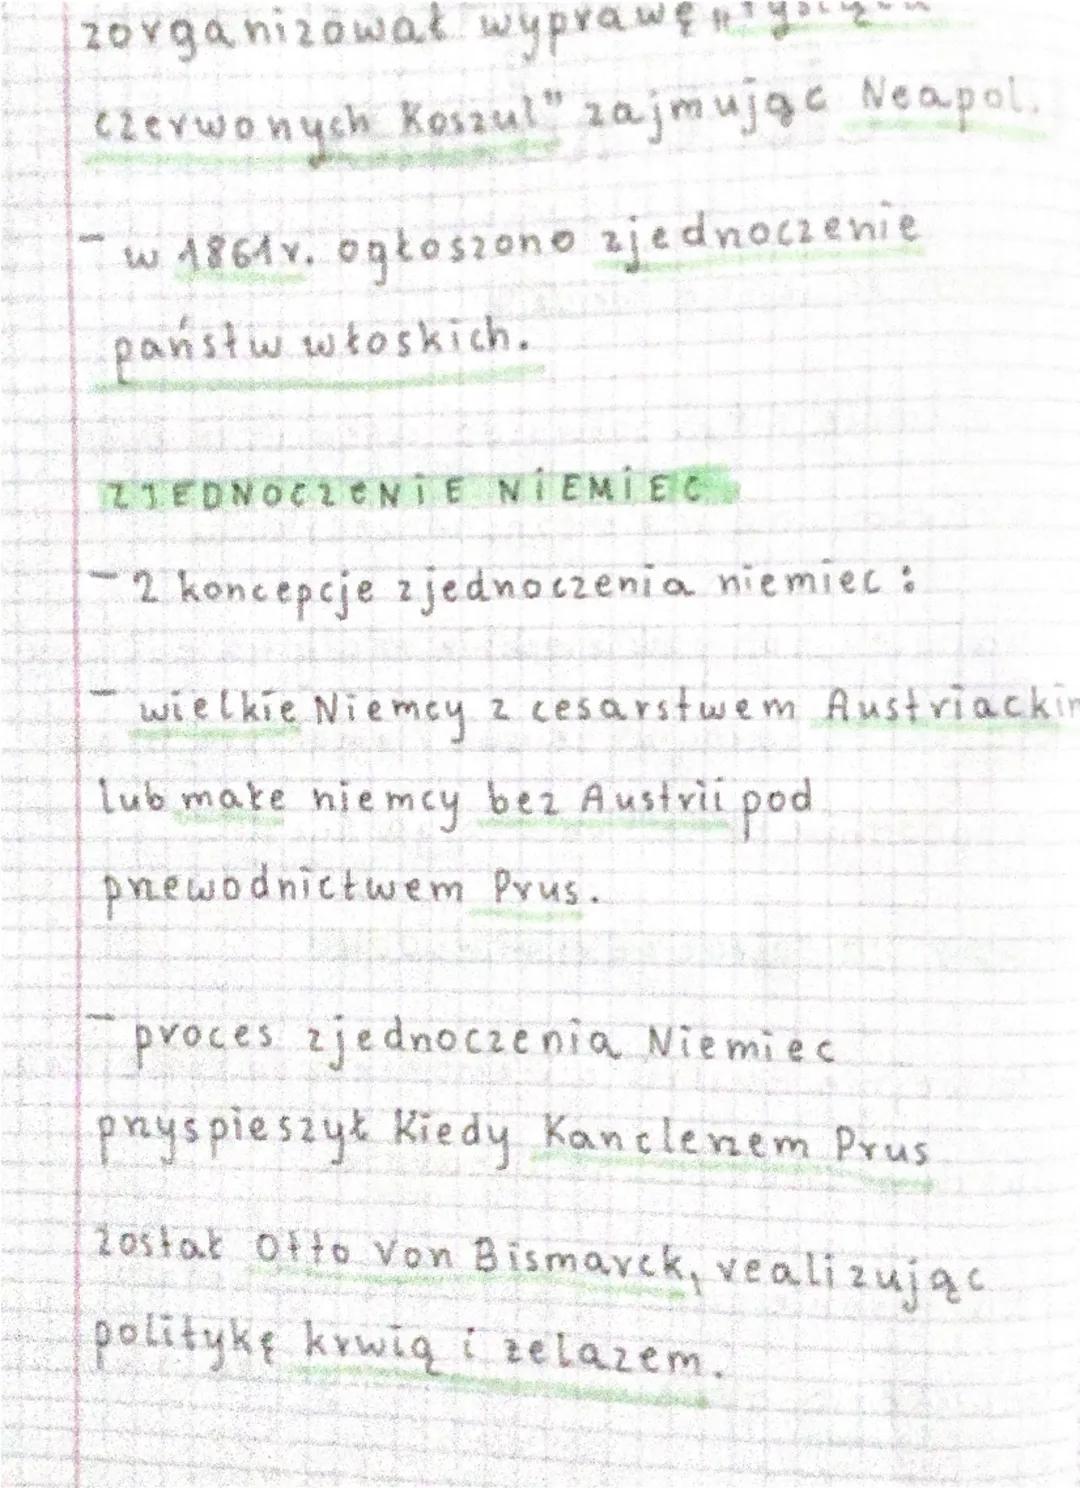 zorganizował wyprawę „Tysiąca
czerwonych Koszul" zajmując Neapol.
- w 1861r. ogłoszono zjednoczenie
państw włoskich.
ZJEDNOCZENiE NiEMiEC
- 2 koncepcje zjednoczenia niemiec :
- wielkie Niemcy z cesarstwem Austriackim
lub małe niemcy bez Austrii pod
przewodnictwem Prus.
- proces zjednoczenia Niemiec
przyspieszył Kiedy Kanclerzem Prus
został Otto Von Bismarck, realizując
politykę krwią i żelazem.